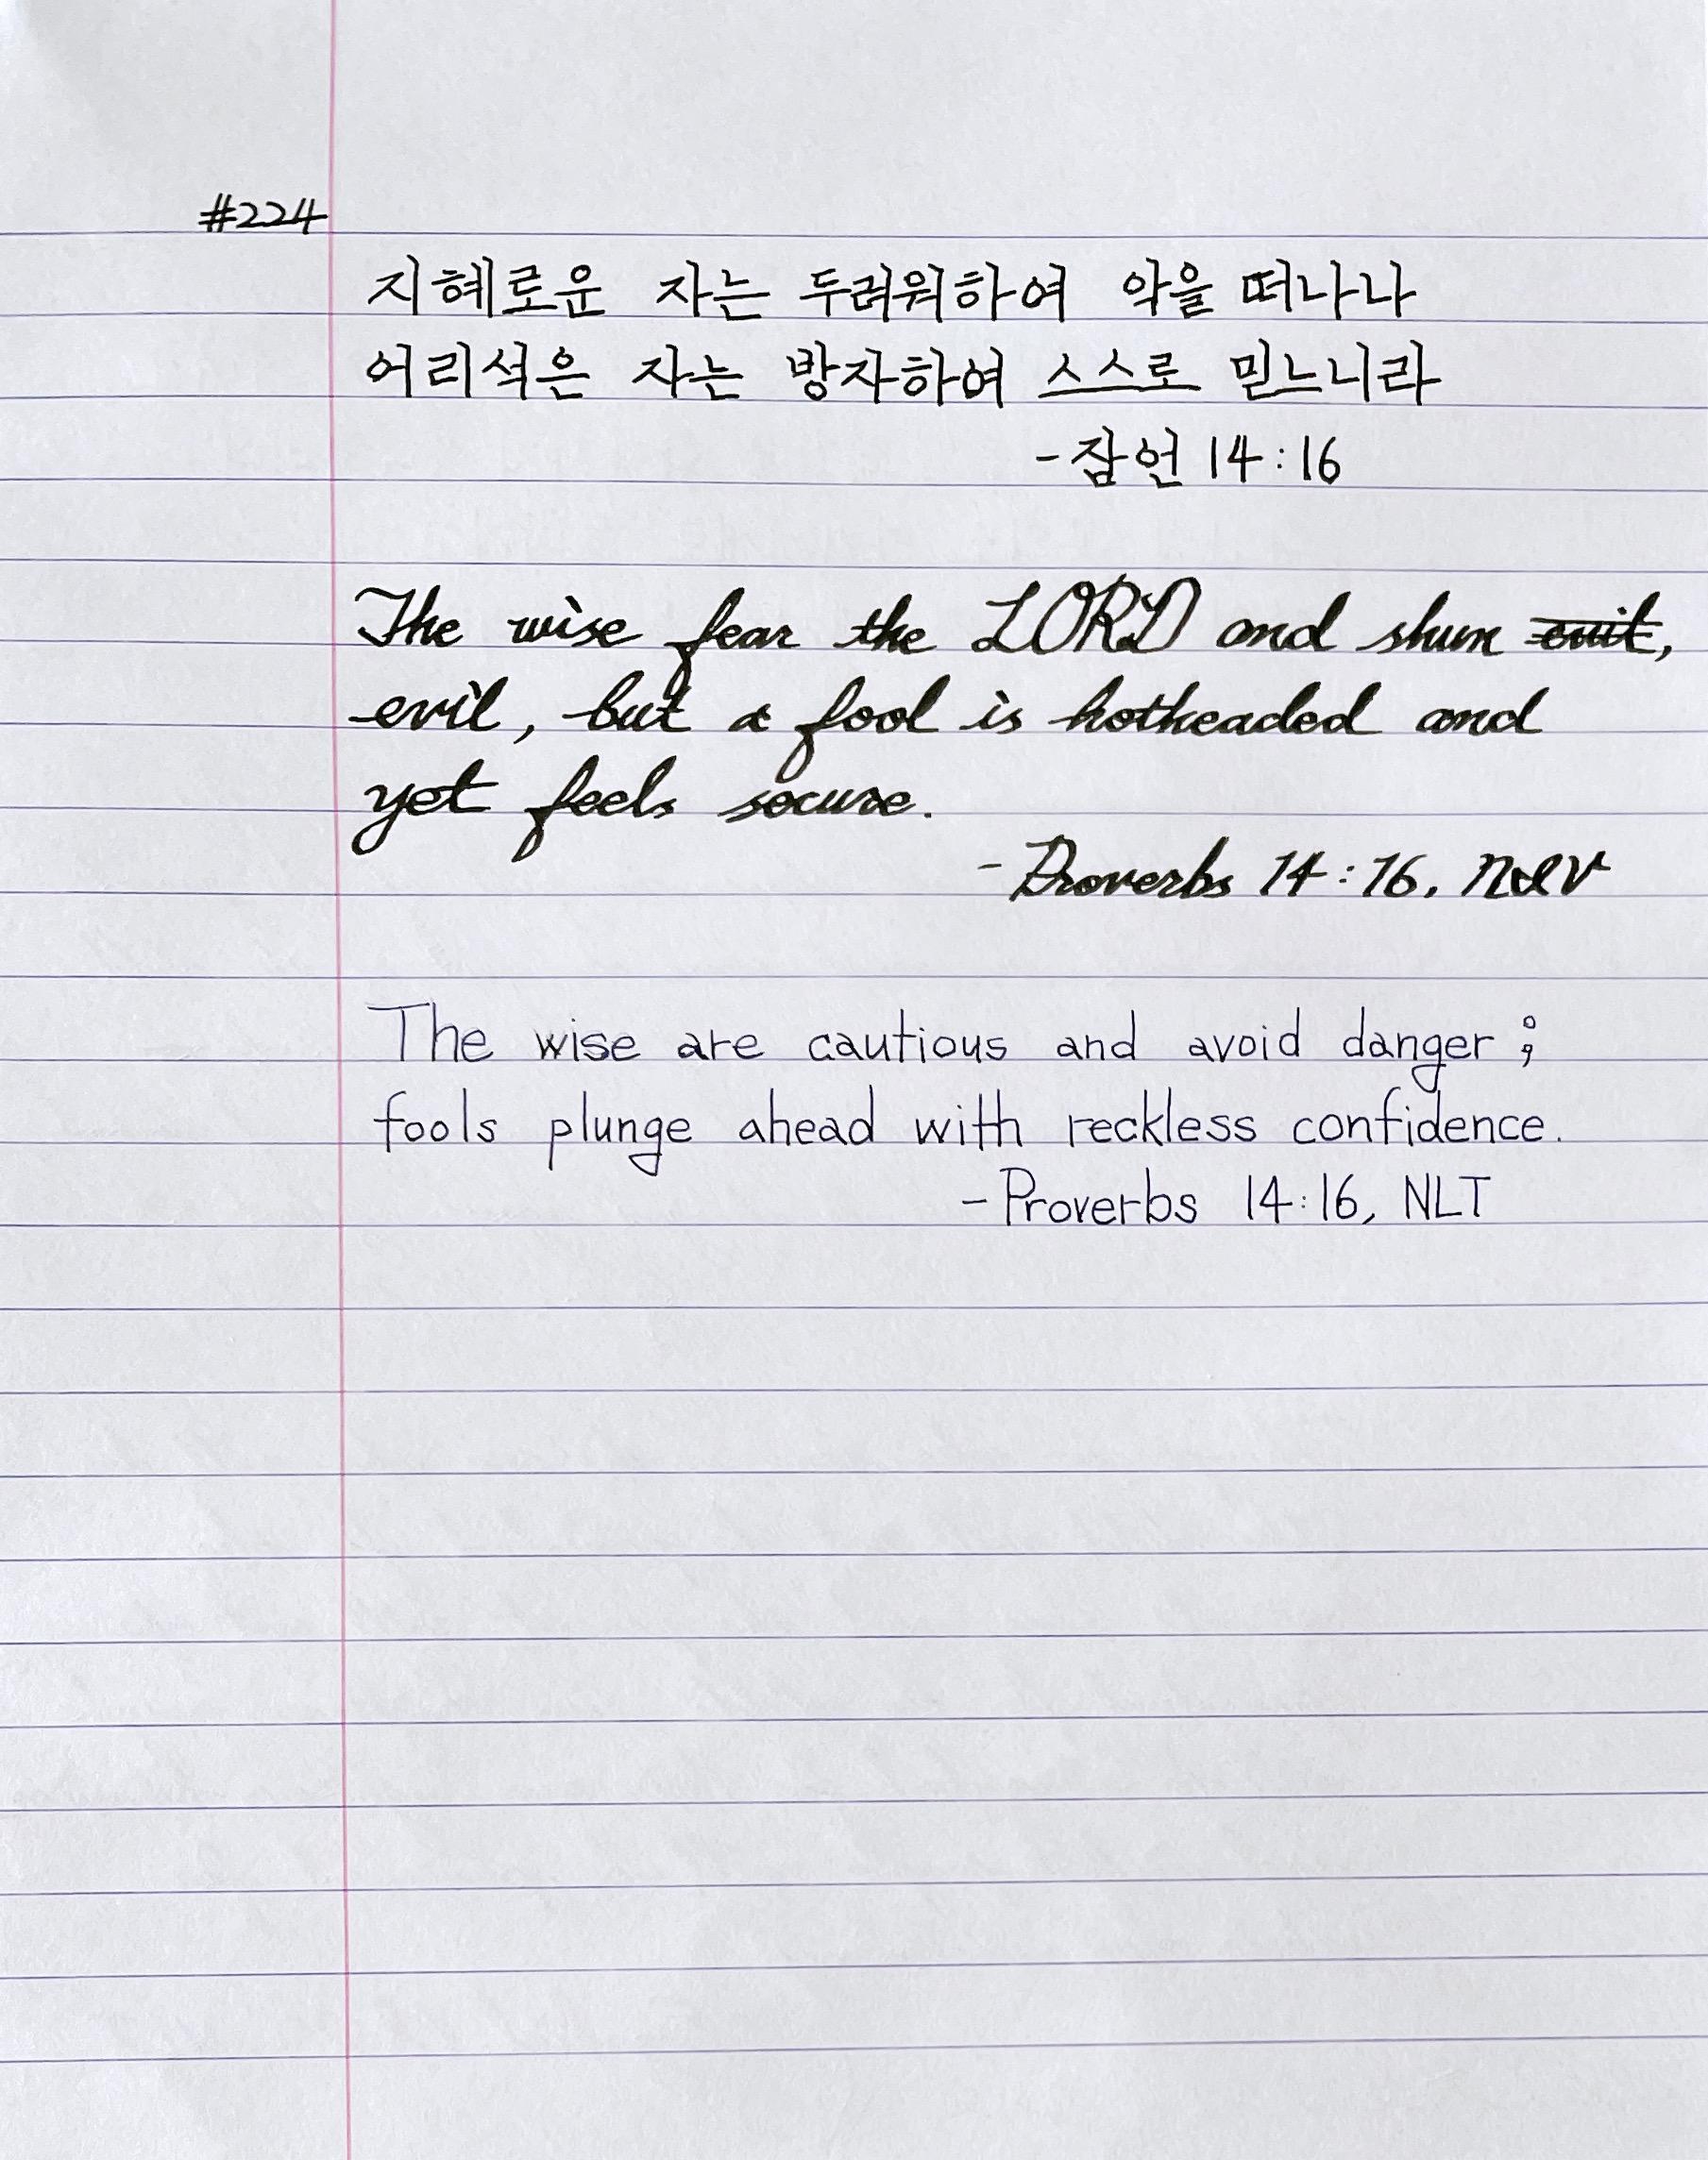 #224
지혜로운 자는 두려워하여 악을 떠나나
어리석은 자는 방자하여 스스로 믿느니라
-잠언 14:16
The wise fear the LORD and shun evil,
evil, but a fool is hotheaded and
yet feels secure.
-Proverbs 14:16, NIV
The wise are cautious and avoid danger;
fools plunge ahead with reckless confidence.
-Proverbs 14:16, NLT